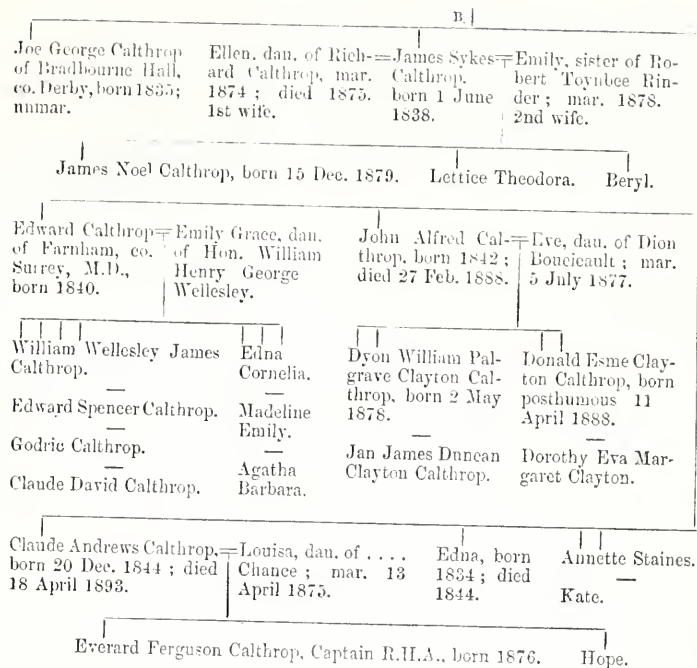 B.
Joe George Calthrop
of Bradbourne Hall,
co. Derby, born 1835;
unmar.
Ellen, dau. of Rich-
ard Calthrop, mar.
1874 ; died 1875.
1st wife.
=James Sykes=
Calthrop.
born 1 June
1838.
Emily, sister of Ro-
bert Toynbee Rin-
der ; mar. 1878.
2nd wife.
James Noel Calthrop, born 15 Dec. 1879.
Lettice Theodora.
Beryl.
Edward Calthrop=
of Farnham, co.
Surrey, M.D.,
born 1840.
Emily Grace, dau.
of Hon. William
Henry George
Wellesley.
John Alfred Cal-=
throp, born 1842 ;
died 27 Feb. 1888.
Eve, dau. of Dion
Boucicault ; mar.
5 July 1877.
William Wellesley James
Calthrop.
—
Edward Spencer Calthrop.
—
Godric Calthrop.
—
Claude David Calthrop.
Edna
Cornelia.
—
Madeline
Emily.
—
Agatha
Barbara.
Dyon William Pal-
grave Clayton Cal-
throp, born 2 May
1878.
—
Jan James Duncan
Clayton Calthrop.
Donald Esme Clay-
ton Calthrop, born
posthumous 11
April 1888.
—
Dorothy Eva Mar-
garet Clayton.
Claude Andrews Calthrop,=
born 20 Dec. 1844 ; died
18 April 1893.
Louisa, dau. of . . . .
Chance ; mar. 13
April 1875.
Edna, born
1834 ; died
1844.
Annette Staines.
—
Kate.
Everard Ferguson Calthrop, Captain R.H.A., born 1876.
Hope.